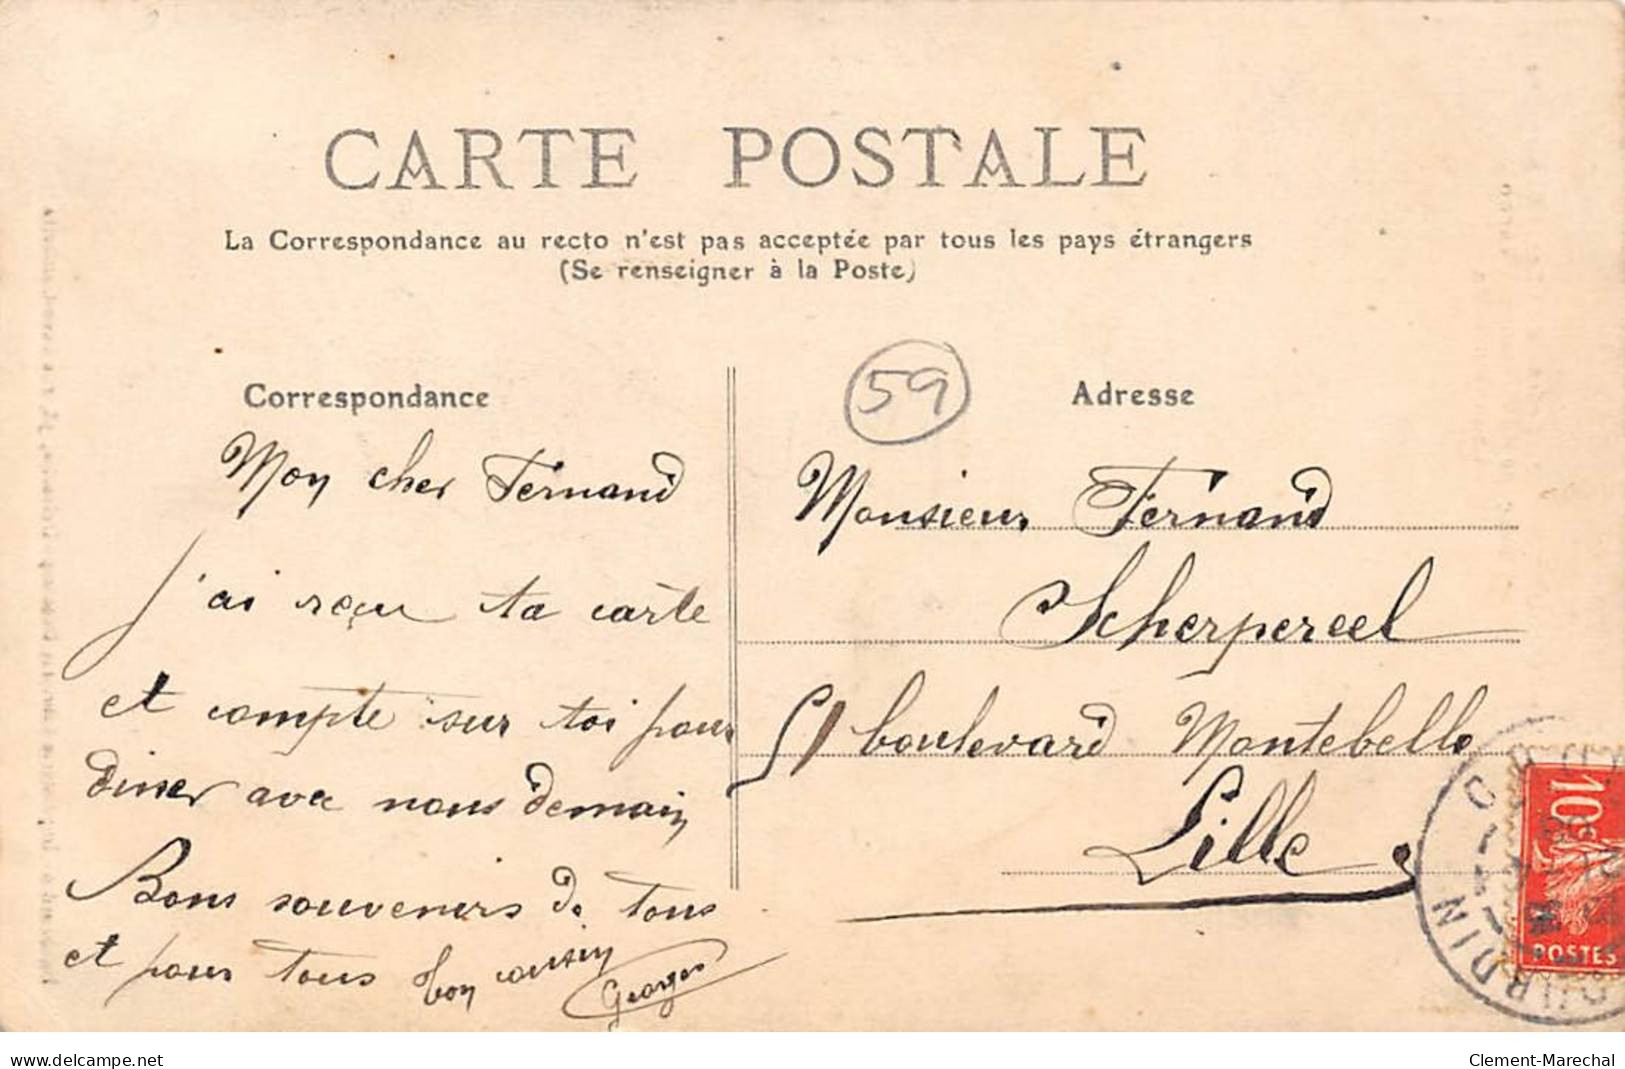 CARTE POSTALE
La Correspondance au recto n'est pas acceptée par tous les pays étrangers
(Se renseigner à la Poste)
Correspondance
Mon cher Fernand
j'ai reçu ta carte
et compte sur toi pour
diner avec nous demain
Bons souvenirs de tous
et pour tous ton cousin
Georges
59
Adresse
Monsieur Fernand
Scherpereel
51 boulevard Montebello
Lille
10c
POSTES
www.delcampe.net
Clement-Marechal